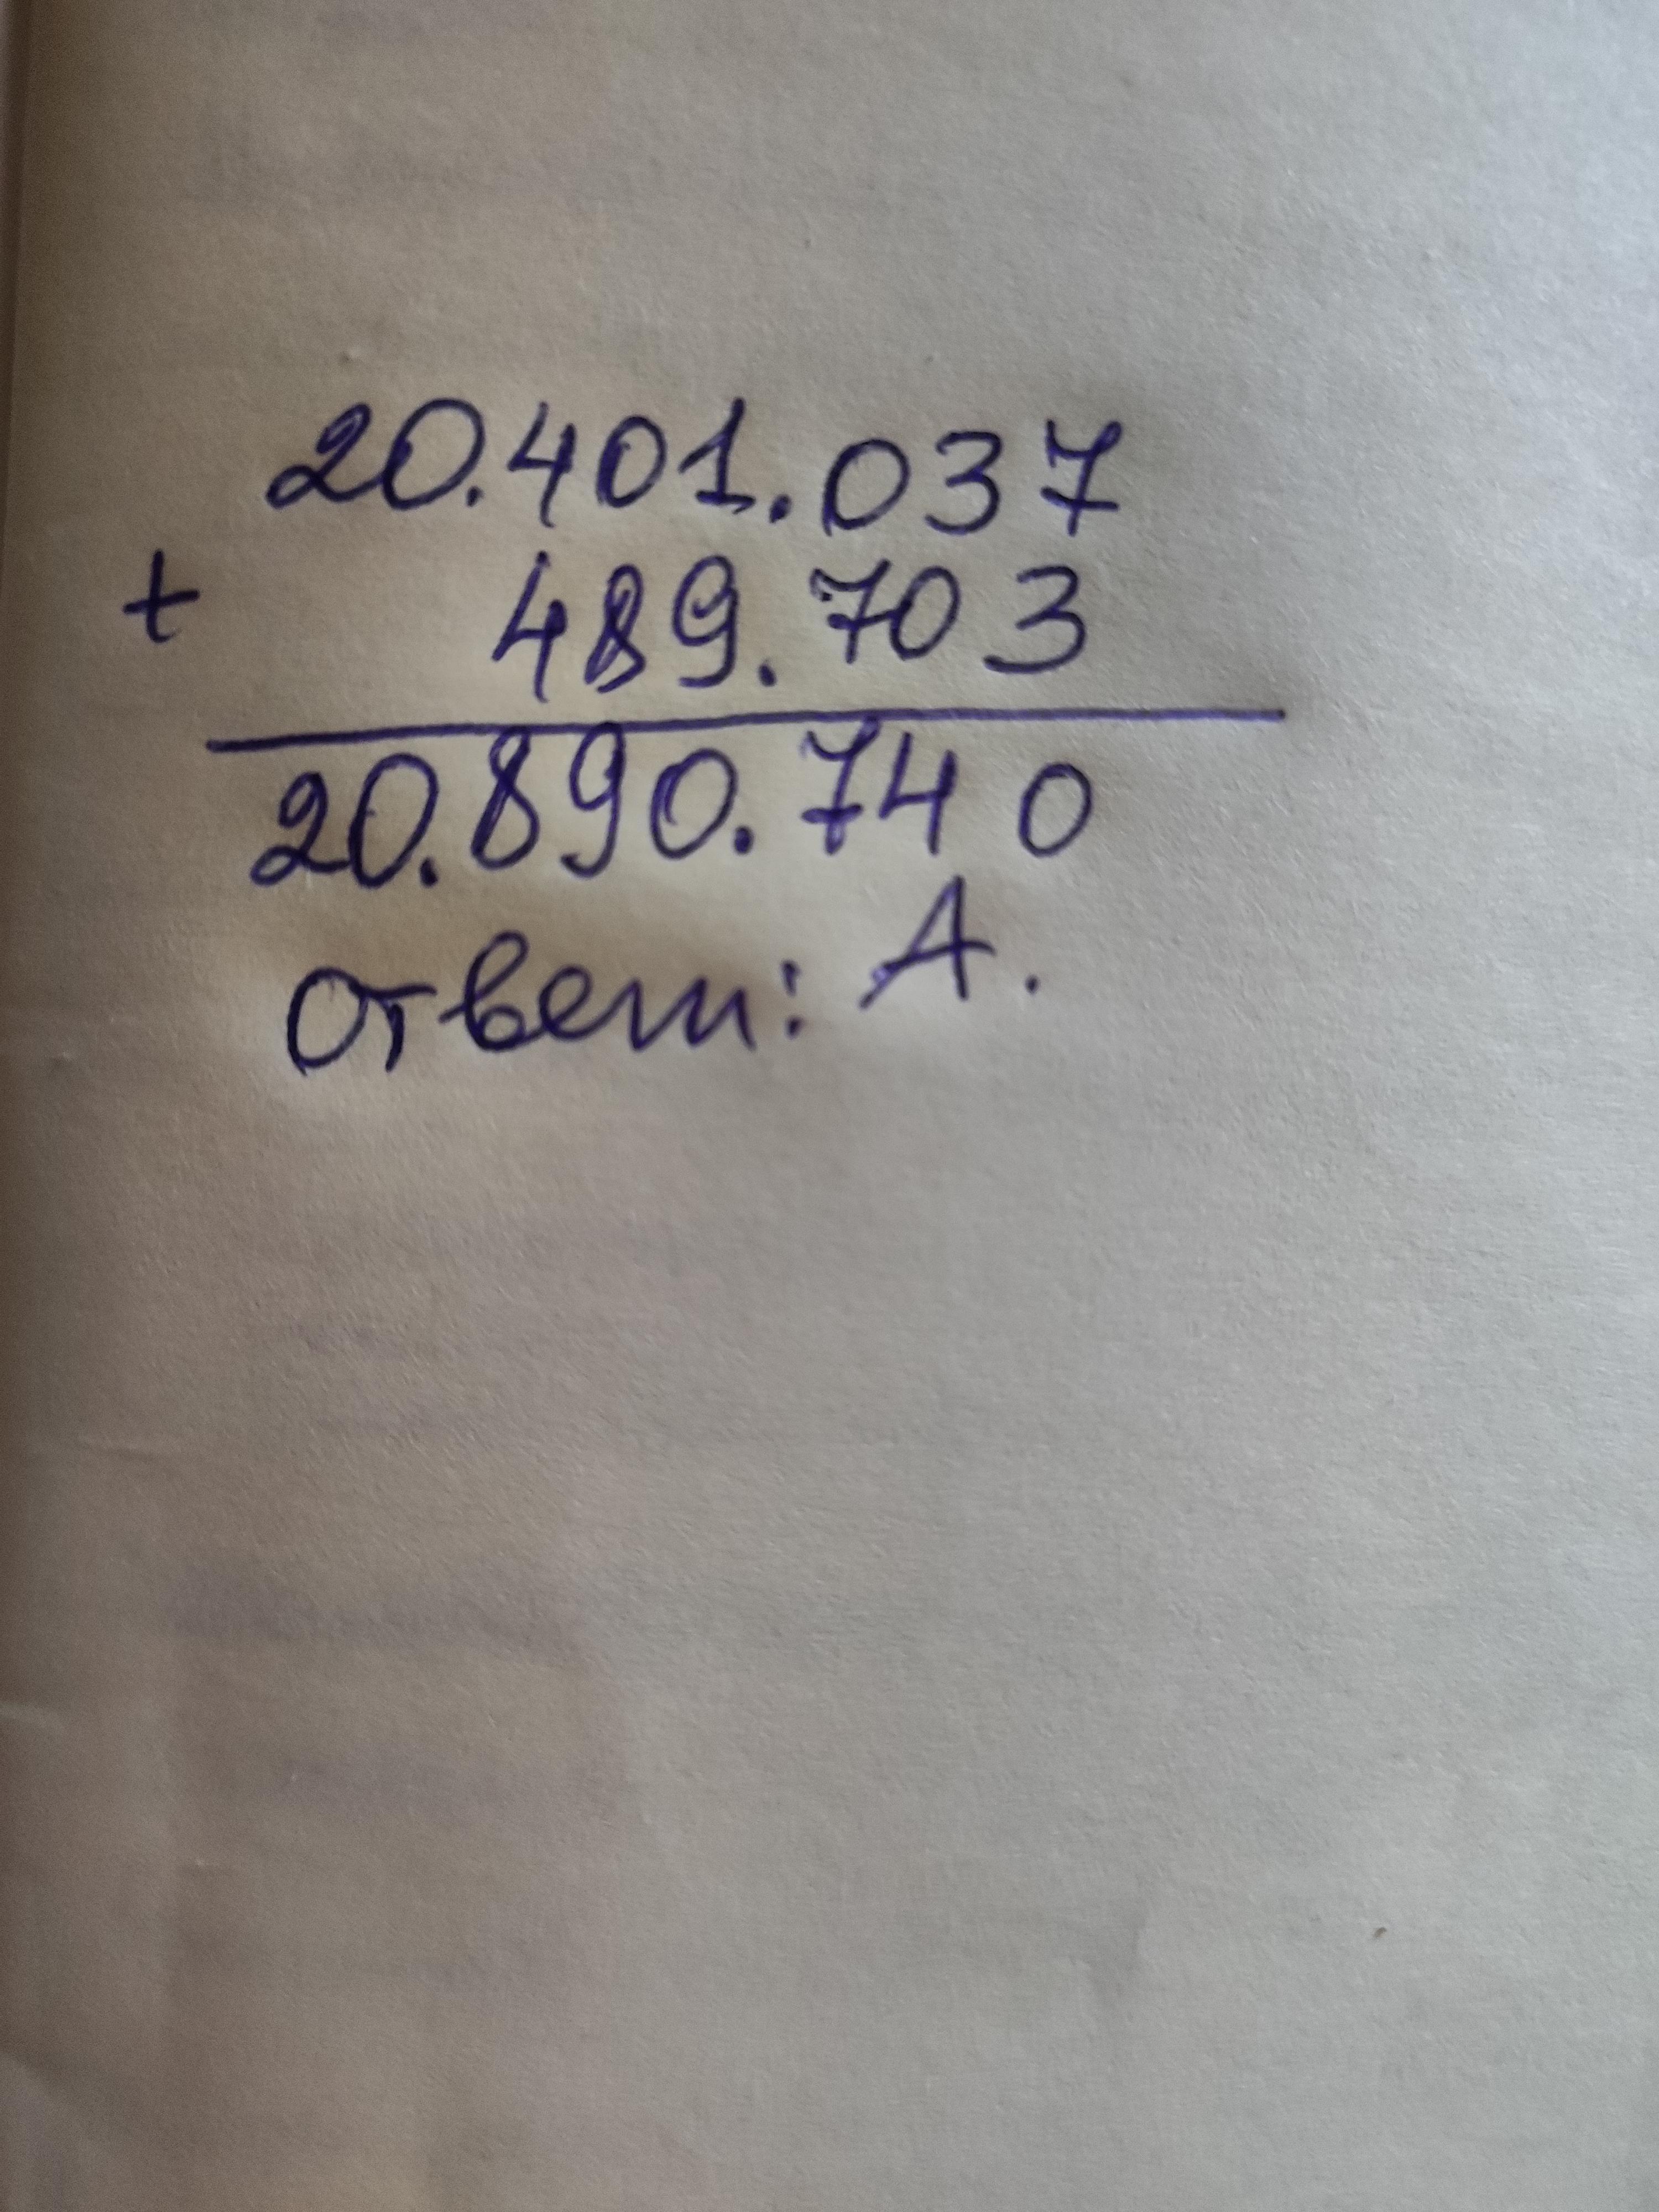 20.401.037
+ 489.703
20.890.740
Ответ: А.